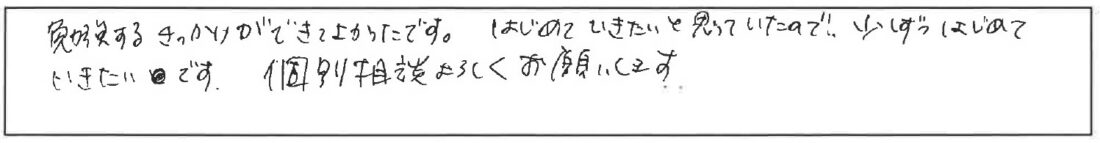 勉強するきっかけができてよかったです。 はじめていきたいと思っていたので、少しずつはじめて
いきたいです。 個別相談よろしくお願いします